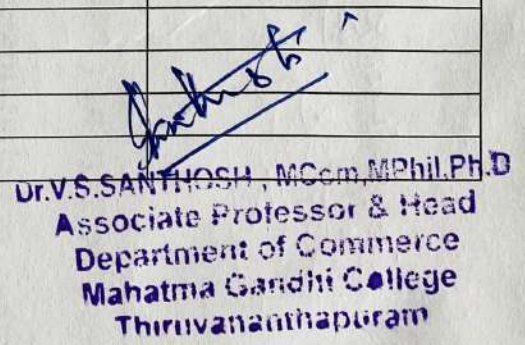 Santhosh
Dr.V.S.SANTHOSH , MCom,MPhil,Ph.D
Associate Professor & Head
Department of Commerce
Mahatma Gandhi College
Thiruvananthapuram